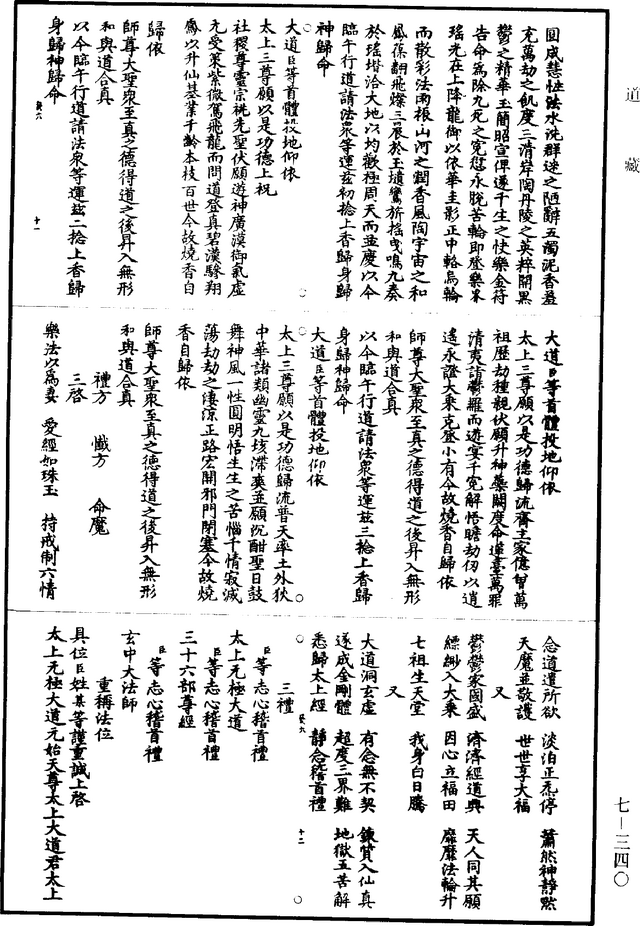 道藏
圓成慧性法水洗群迷之陋辭五濁泥香盈
充萬劫之飢度三清岸陶丹陵之英粹開黑
鬱之精華玉簡昭宣俾遂千生之快樂金符
告命為除九死之冤愆永脫苦輪即登樂果
瑤光在上降龍御以依華圭影正中輅烏輪
而散彩法雨根山河之潤香風陶宇宙之和
鳳葆翻飛燦三辰於玉墳鸞旂搖曳鳴九奏
於瑤堦洽大地以均歡極周天而並慶以今
臨午行道請法眾等運茲初捻上香歸身歸
神歸命
大道臣等首體投地仰依
太上三尊願以是功德上祝
社稷尊靈宗祧先聖伏願遊神廣漠御氣虛
无受策紫微駕飛龍而問道登真碧漢驂翔
鳳以升仙基業千齡本枝百世今故燒香自
歸依
師尊大聖眾至真之德得道之後昇入無形
和與道合真
以今臨午行道請法眾等運茲二捻上香歸
身歸神歸命
大道臣等首體投地仰依
太上三尊願以是功德歸流齋主家億曾萬
祖歷劫種親伏願升神藥闕度命蓬臺萬罪
清夷詣鬱羅而遊宴千冤解悟瞻劫仞以逍
遙永證大乘克登小有今故燒香自歸依
師尊大聖眾至真之德得道之後昇入無形
和與道合真
以今臨午行道請法眾等運茲三捻上香歸
身歸神歸命
大道臣等首體投地仰依
太上三尊願以是功德歸流普天率土外狄
中華諸類幽靈九垓滯爽並願沉酣聖日鼓
舞神風一性圓明悟生生之苦惱千情寂滅
蕩劫劫之淒涼正路宏開邪門閉塞今故燒
香自歸依
師尊大聖眾至真之德得道之後昇入無形
和與道合真
禮方 懺方 命魔
三啓
樂法以為妻 愛經如珠玉 持戒制六情
念道遣所欲 淡泊正炁停 蕭然神靜默
天魔並敬護 世世享大福
又
鬱鬱家國盛 濟濟經道興 天人同其願
縹緲入大乘 因心立福田 靡靡法輪升
七祖生天堂 我身白日騰
又
大道洞玄虛 有念無不契 鍊質入仙真
遂成金剛體 超度三界難 地獄五苦解
悉歸太上經 靜念稽首禮
三禮
臣等志心稽首禮
太上无極大道
臣等志心稽首禮
三十六部尊經
臣等志心稽首禮
玄中大法師
重稱法位
具位臣姓某等謹重誠上啓
太上无極大道元始天尊太上大道君太上
七－三四〇